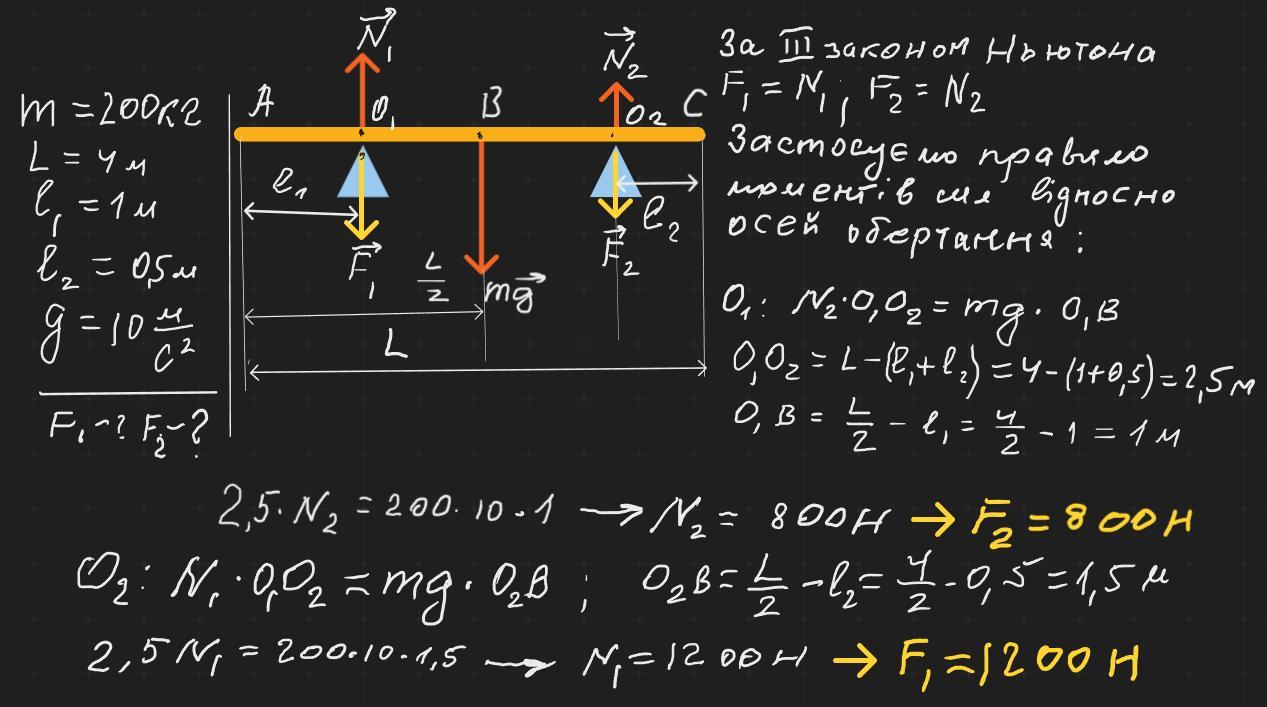 m = 200кг
L = 4 м
l₁ = 1 м
l₂ = 0,5 м
g = 10 м/с²
F₁ - ? F₂ - ?
N₁
N₂
A O₁ B O₂ C
l₁
l₂
F₁
L/2
mg
F₂
L
За III законом Ньютона
F₁ = N₁ ; F₂ = N₂
Застосуємо правило
моментів сил відносно
осей обертання :
O₁: N₂·O₁O₂ = mg · O₁B
O₁O₂ = L-(l₁+l₂) = 4-(1+0,5) = 2,5 м
O₁B = L/2 - l₁ = 4/2 - 1 = 1 м
2,5·N₂ = 200·10·1 → N₂ = 800Н → F₂ = 800Н
O₂: N₁·O₁O₂ = mg·O₂B ; O₂B = L/2 - l₂ = 4/2 - 0,5 = 1,5 м
2,5N₁ = 200·10·1,5 → N₁ = 1200Н → F₁ = 1200Н